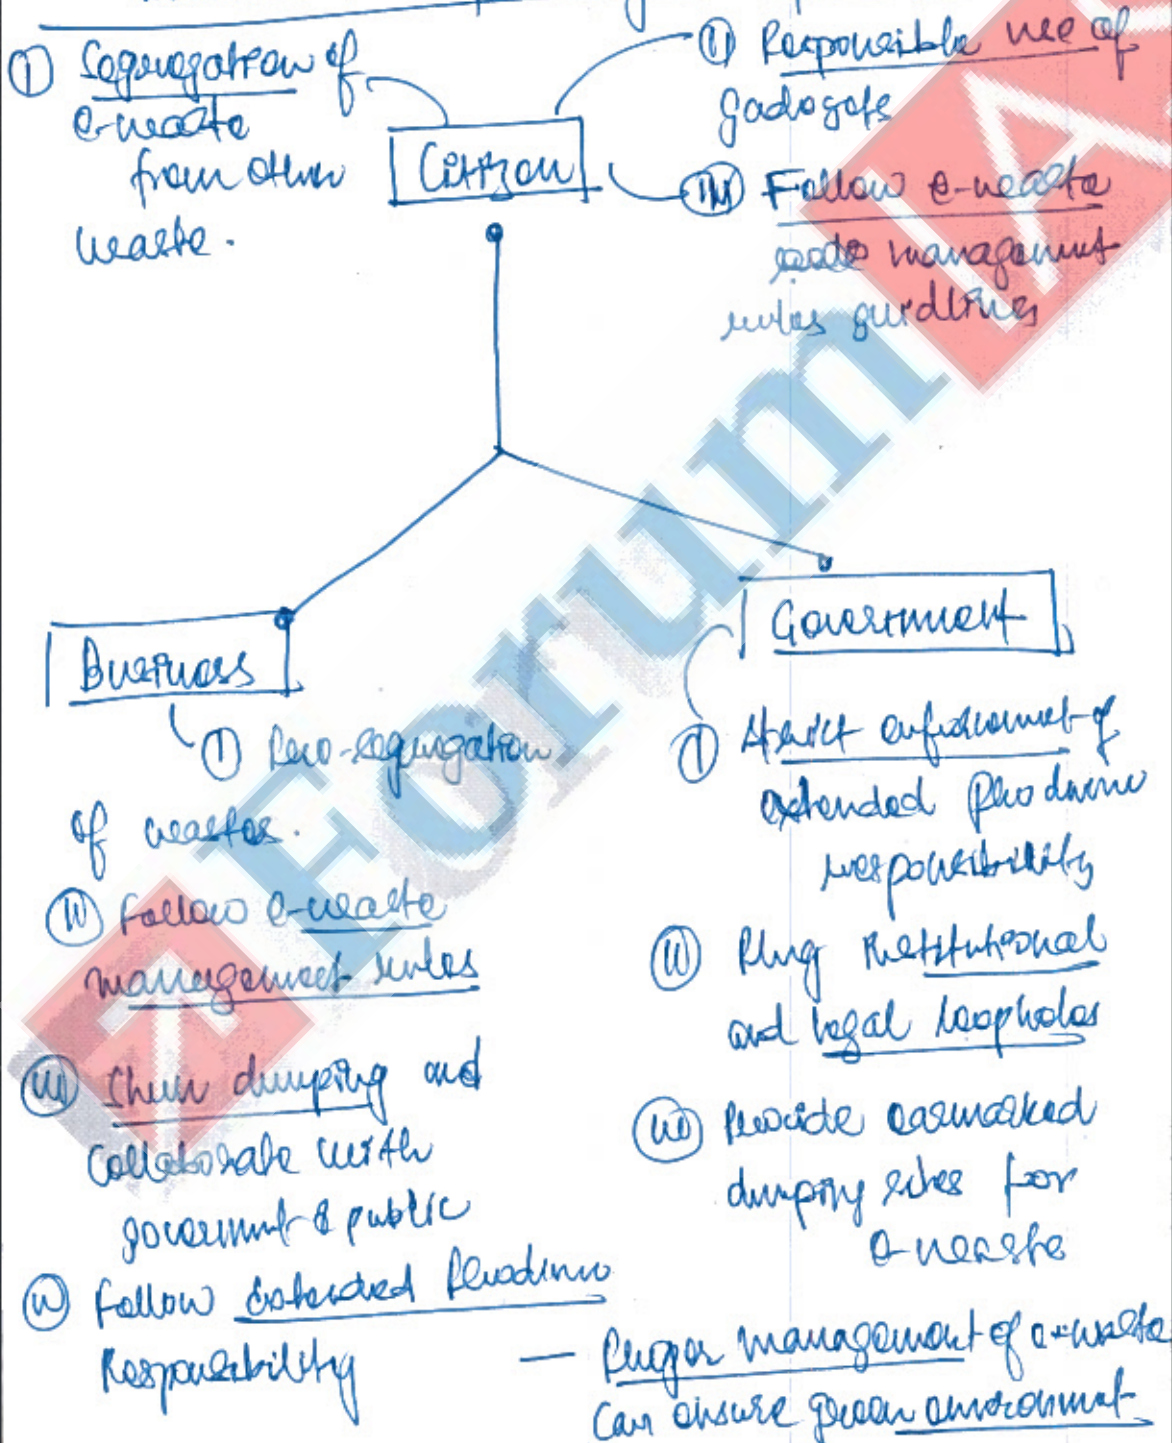 ① Segregation of
e-waste
from other
waste.
Citizen
② Responsible use of
gadgets
③ Follow e-waste
management
rules guidlines
Business
① Pero-segregation
of wastes.
② Follow e-waste
management rules
③ Shun dumping and
collaborate with
government & public
④ Follow Extended Producer
Responsibility
Government
① Strict enforcement of
extended Producer
responsibility
② Plug institutional
and legal loopholes
③ Provide earmarked
dumping sites for
e-waste
— Proper management of e-waste
can ensure green environment
ForumIAS